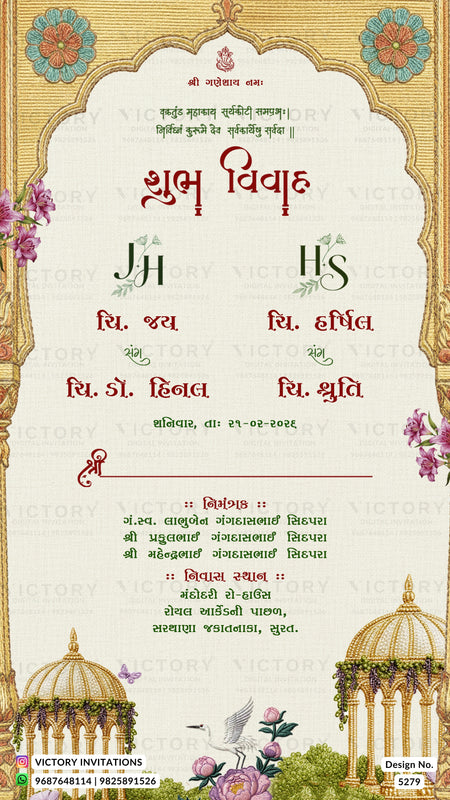 શ્રી ગણેશાય નમઃ
વક્રતુંડ મહાકાય સૂર્યકોટી સમપ્રભઃ।
નિર્વિઘ્નં કુરુમે દેવ સર્વકાર્યેષુ સર્વદા ॥
શુભ વિવાહ
J.H H.S
ચિ. જય ચિ. હર્ષિલ
સંગ સંગ
ચિ. ડૉ. હિનલ ચિ. શ્રુતિ
શનિવાર, તાઃ ૨૧-૦૨-૨૦૨૬
શ્રી
:: નિમંત્રક ::
ગં.સ્વ. લાભુબેન ગંગદાસભાઈ સિઠપરા
શ્રી પ્રફુલભાઈ ગંગદાસભાઈ સિઠપરા
શ્રી મહેન્દ્રભાઈ ગંગદાસભાઈ સિઠપરા
:: નિવાસ સ્થાન ::
મંદોદરી રો-હાઉસ
રોયલ આર્કેડની પાછળ,
સરથાણા જકાતનાકા, સુરત.
VICTORY INVITATIONS
9687648114 | 9825891526
Design No.
5279